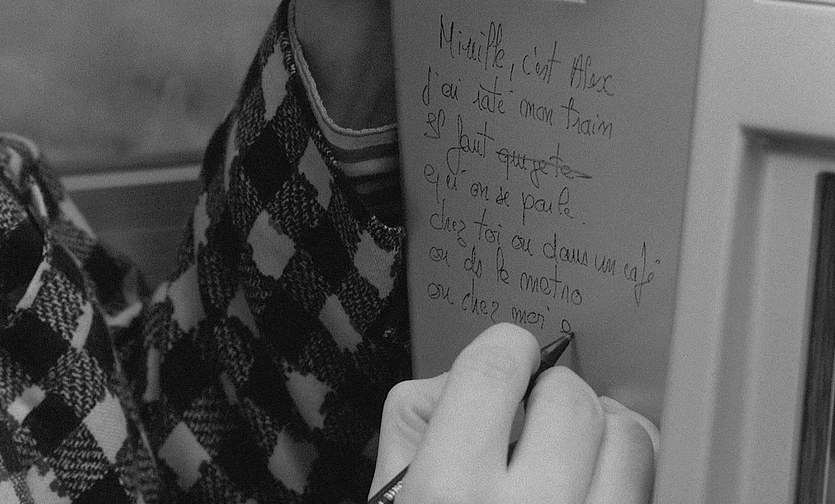 Mireille, c'est Alex
J'ai raté mon train
Il faut que je te
qu'on se parle.
chez toi ou dans un café
ou ds le metro
ou chez moi o